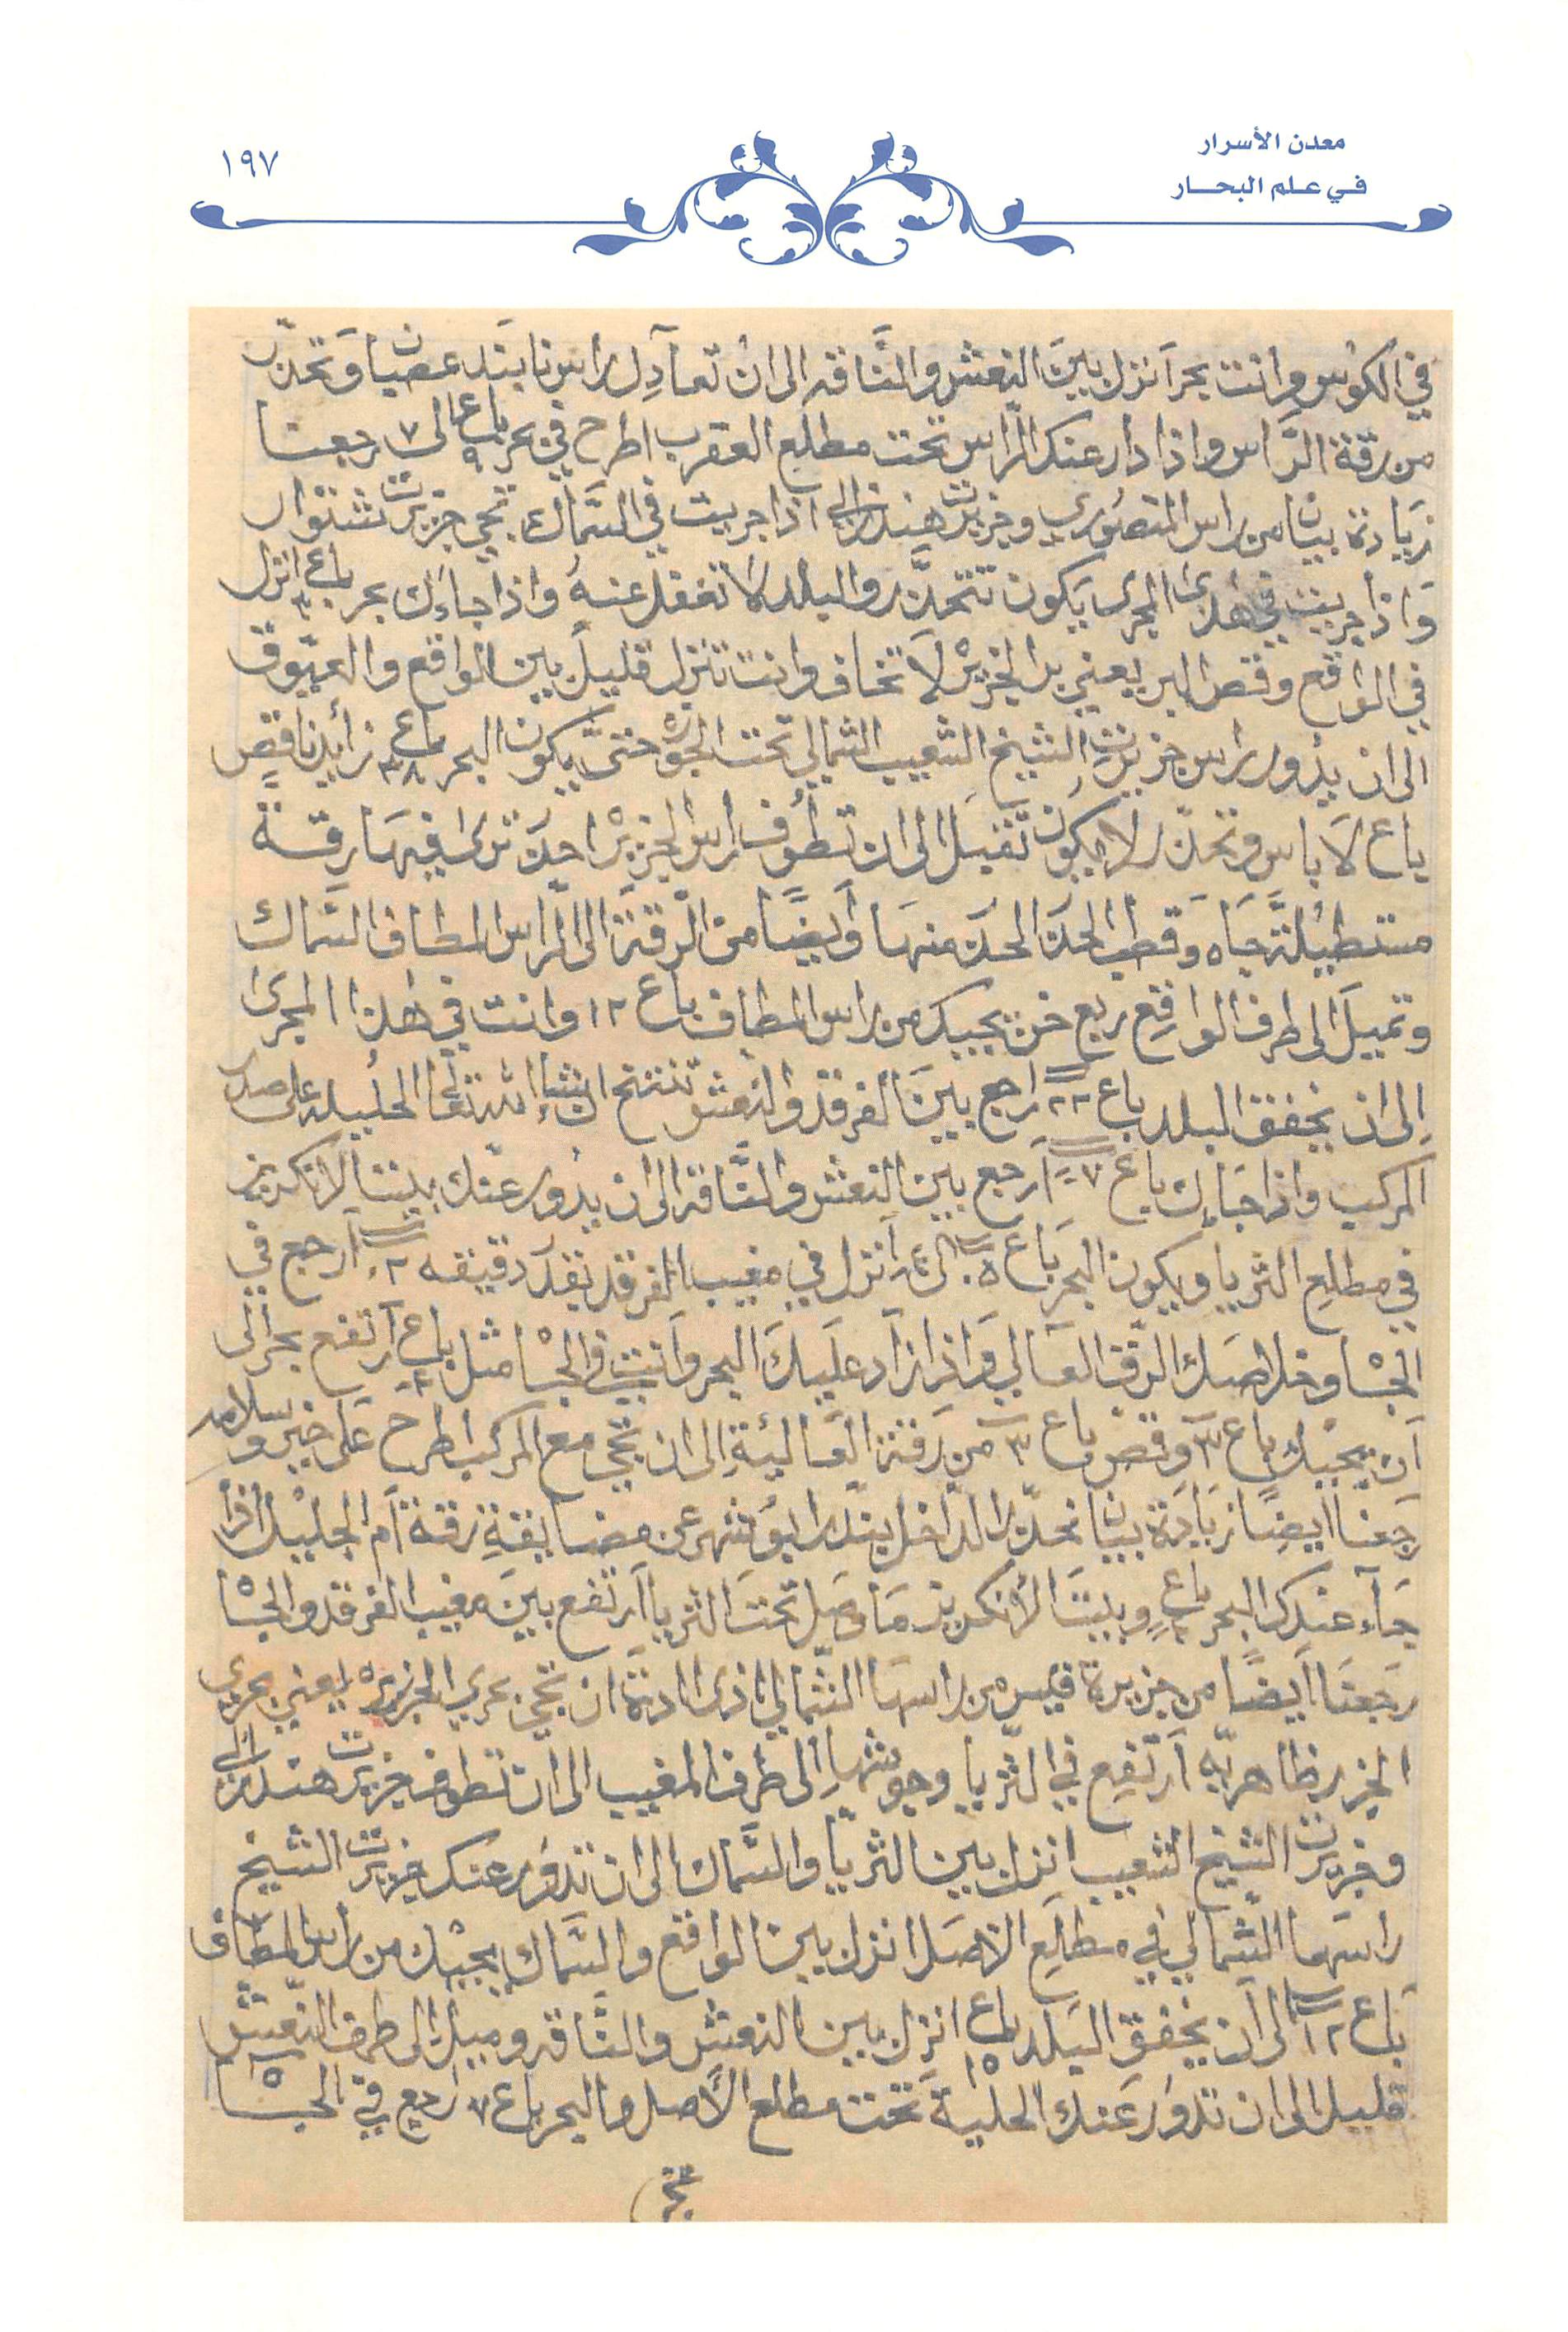 معدن الأسرار
في علم البحار
١٩٧
في الكوس وانت بحرًا نزل بين النعش والناقه الى ان تعادل راس نابند عصيا وتحذر
من رقة الراس واذا دار عنك الراس تحت مطلع العقرب اطرح في بحر باع ٩ الى ٧ رجعنا
زيادة بيان من راس المنصوري وجزيرت هندرابي اذا جريت في السماك تجي جزيرت شتوار
واذا جريت في هذا المجرى يكون تتحذر والبلد لا تغفل عنه واذا جاءك بحر باع انزل
في الواقع وقص البر يعني بر الجزير لا تخاف وانت تنزل قليل بين الواقع والعيوق
الى ان يدور راس جزيرت الشيخ الشعيب الشمالي تحت الجوه حتى يكون البحر باع ٣٨ زايد ناقص
باع لا باس وتحذر لا يكون تقبل الى ان تطوف راس الجزير احذ ترى فيها رقة
مستطيلة جاه وقطب الحذ الحذ منها وأيضًا من الرقة الى الراس المطاف السماك
وتميل الى طرف الواقع ربع خن يجيبك من راس المطاف باع ١٢ وانت في هذا المجرى
الى ان يخفق البلد باع ٢٢ ارجع بين الفرقد والنعش تنتح ان شاء الله تعالى الحليله على صدر
المركب واذا جاءك باع ٧ ارجع بين النعش والناقه الى ان يدور عنك بيت الانكريز
في مطلع الثريا ويكون البحر باع ٥ الى ٤ انزل في مغيب الفرقد بقد دقيقه ٢ ارجع في
الجاه وخلاصك الرقق العالي واذا زاد عليك البحر وانت في الجاه مثل باع ارتفع بحر الى
ان يجيك باع ٣ وقص باع ٣ من رقة العاليئة الى ان تجي مع المركب اطرح على خير وسلامه
رجعنا ايضًا زيادة بيان نحذر الداخل بندر ابوشهر عن مضايقة رقة أم الجليل اذا
جاء عندك البحر باع وبيت الأنكريز ما وصل تحت الثريا ارتفع بين مغيب الفرقد والجاه
رجعنا أيضًا من جزيرة قيس من راسها الشمالي اذى اردة ان تجي بحري الجزيره يعني بحري
الجزير ظاهريه ارتفع في الثريا وحوشها الى طرف المغيب الى ان تطوف جزيرت هندرابي
وجزيرت الشيخ الشعيب انزل بين الثريا والسماك الى ان تدور عنك جزيرت الشيخ
راسها الشمالي في مطلع الاصل انزل بين الواقع والسماك يجيك من راس المطاف
باع ١٢ الى ان يخفق البلد باع ١٥ انزل بين النعش والناقه وميل الى طرف النعش
قليل الى ان تدور عنك الحلية تحت مطلع الأصل والبحر باع ٧ رجع في الجاه